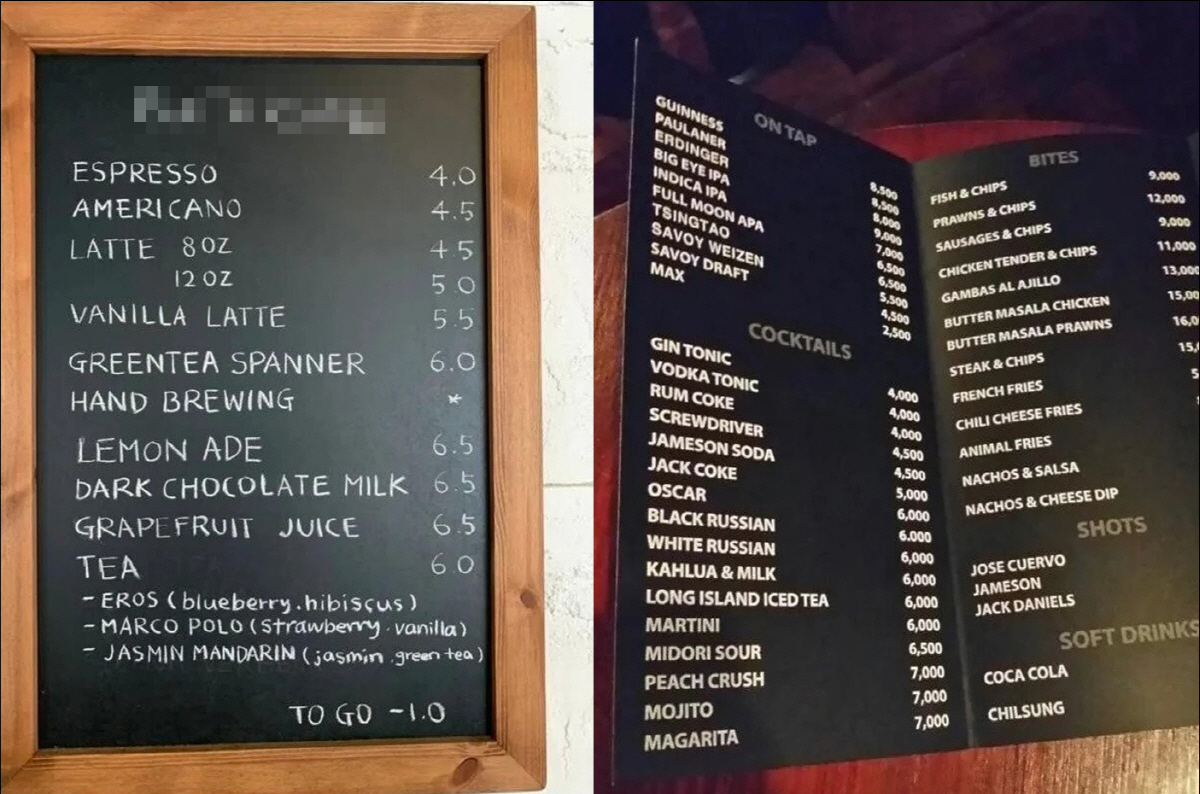 ESPRESSO 4.0
AMERICANO 4.5
LATTE 8OZ 4.5
12OZ 5.0
VANILLA LATTE 5.5
GREENTEA SPANNER 6.0
HAND BREWING *
LEMON ADE 6.5
DARK CHOCOLATE MILK 6.5
GRAPEFRUIT JUICE 6.5
TEA 6.0
- EROS (blueberry.hibiscus)
- MARCO POLO (strawberry.vanilla)
- JASMIN MANDARIN (jasmin.green tea)
TO GO -1.0
ON TAP
GUINNESS 8,500
PAULANER 8,500
ERDINGER 8,000
BIG EYE IPA 9,000
INDICA IPA 7,000
FULL MOON APA 6,500
TSINGTAO 6,500
SAVOY WEIZEN 5,500
SAVOY DRAFT 4,500
MAX 2,500
COCKTAILS
GIN TONIC 4,000
VODKA TONIC 4,000
RUM COKE 4,000
SCREWDRIVER 4,500
JAMESON SODA 4,500
JACK COKE 5,000
OSCAR 6,000
BLACK RUSSIAN 6.000
WHITE RUSSIAN 6,000
KAHLUA & MILK 6,000
LONG ISLAND ICED TEA 6,000
MARTINI 6,000
MIDORI SOUR 6,500
PEACH CRUSH 7,000
MOJITO 7,000
MAGARITA 7,000
BITES
FISH & CHIPS 9,000
PRAWNS & CHIPS 12,000
SAUSAGES & CHIPS 9,000
CHICKEN TENDER & CHIPS 11,000
GAMBAS AL AJILLO 13,000
BUTTER MASALA CHICKEN
BUTTER MASALA PRAWNS
STEAK & CHIPS
FRENCH FRIES
CHILI CHEESE FRIES
ANIMAL FRIES
NACHOS & SALSA
NACHOS & CHEESE DIP
SHOTS
JOSE CUERVO
JAMESON
JACK DANIELS
SOFT DRINKS
COCA COLA
CHILSUNG